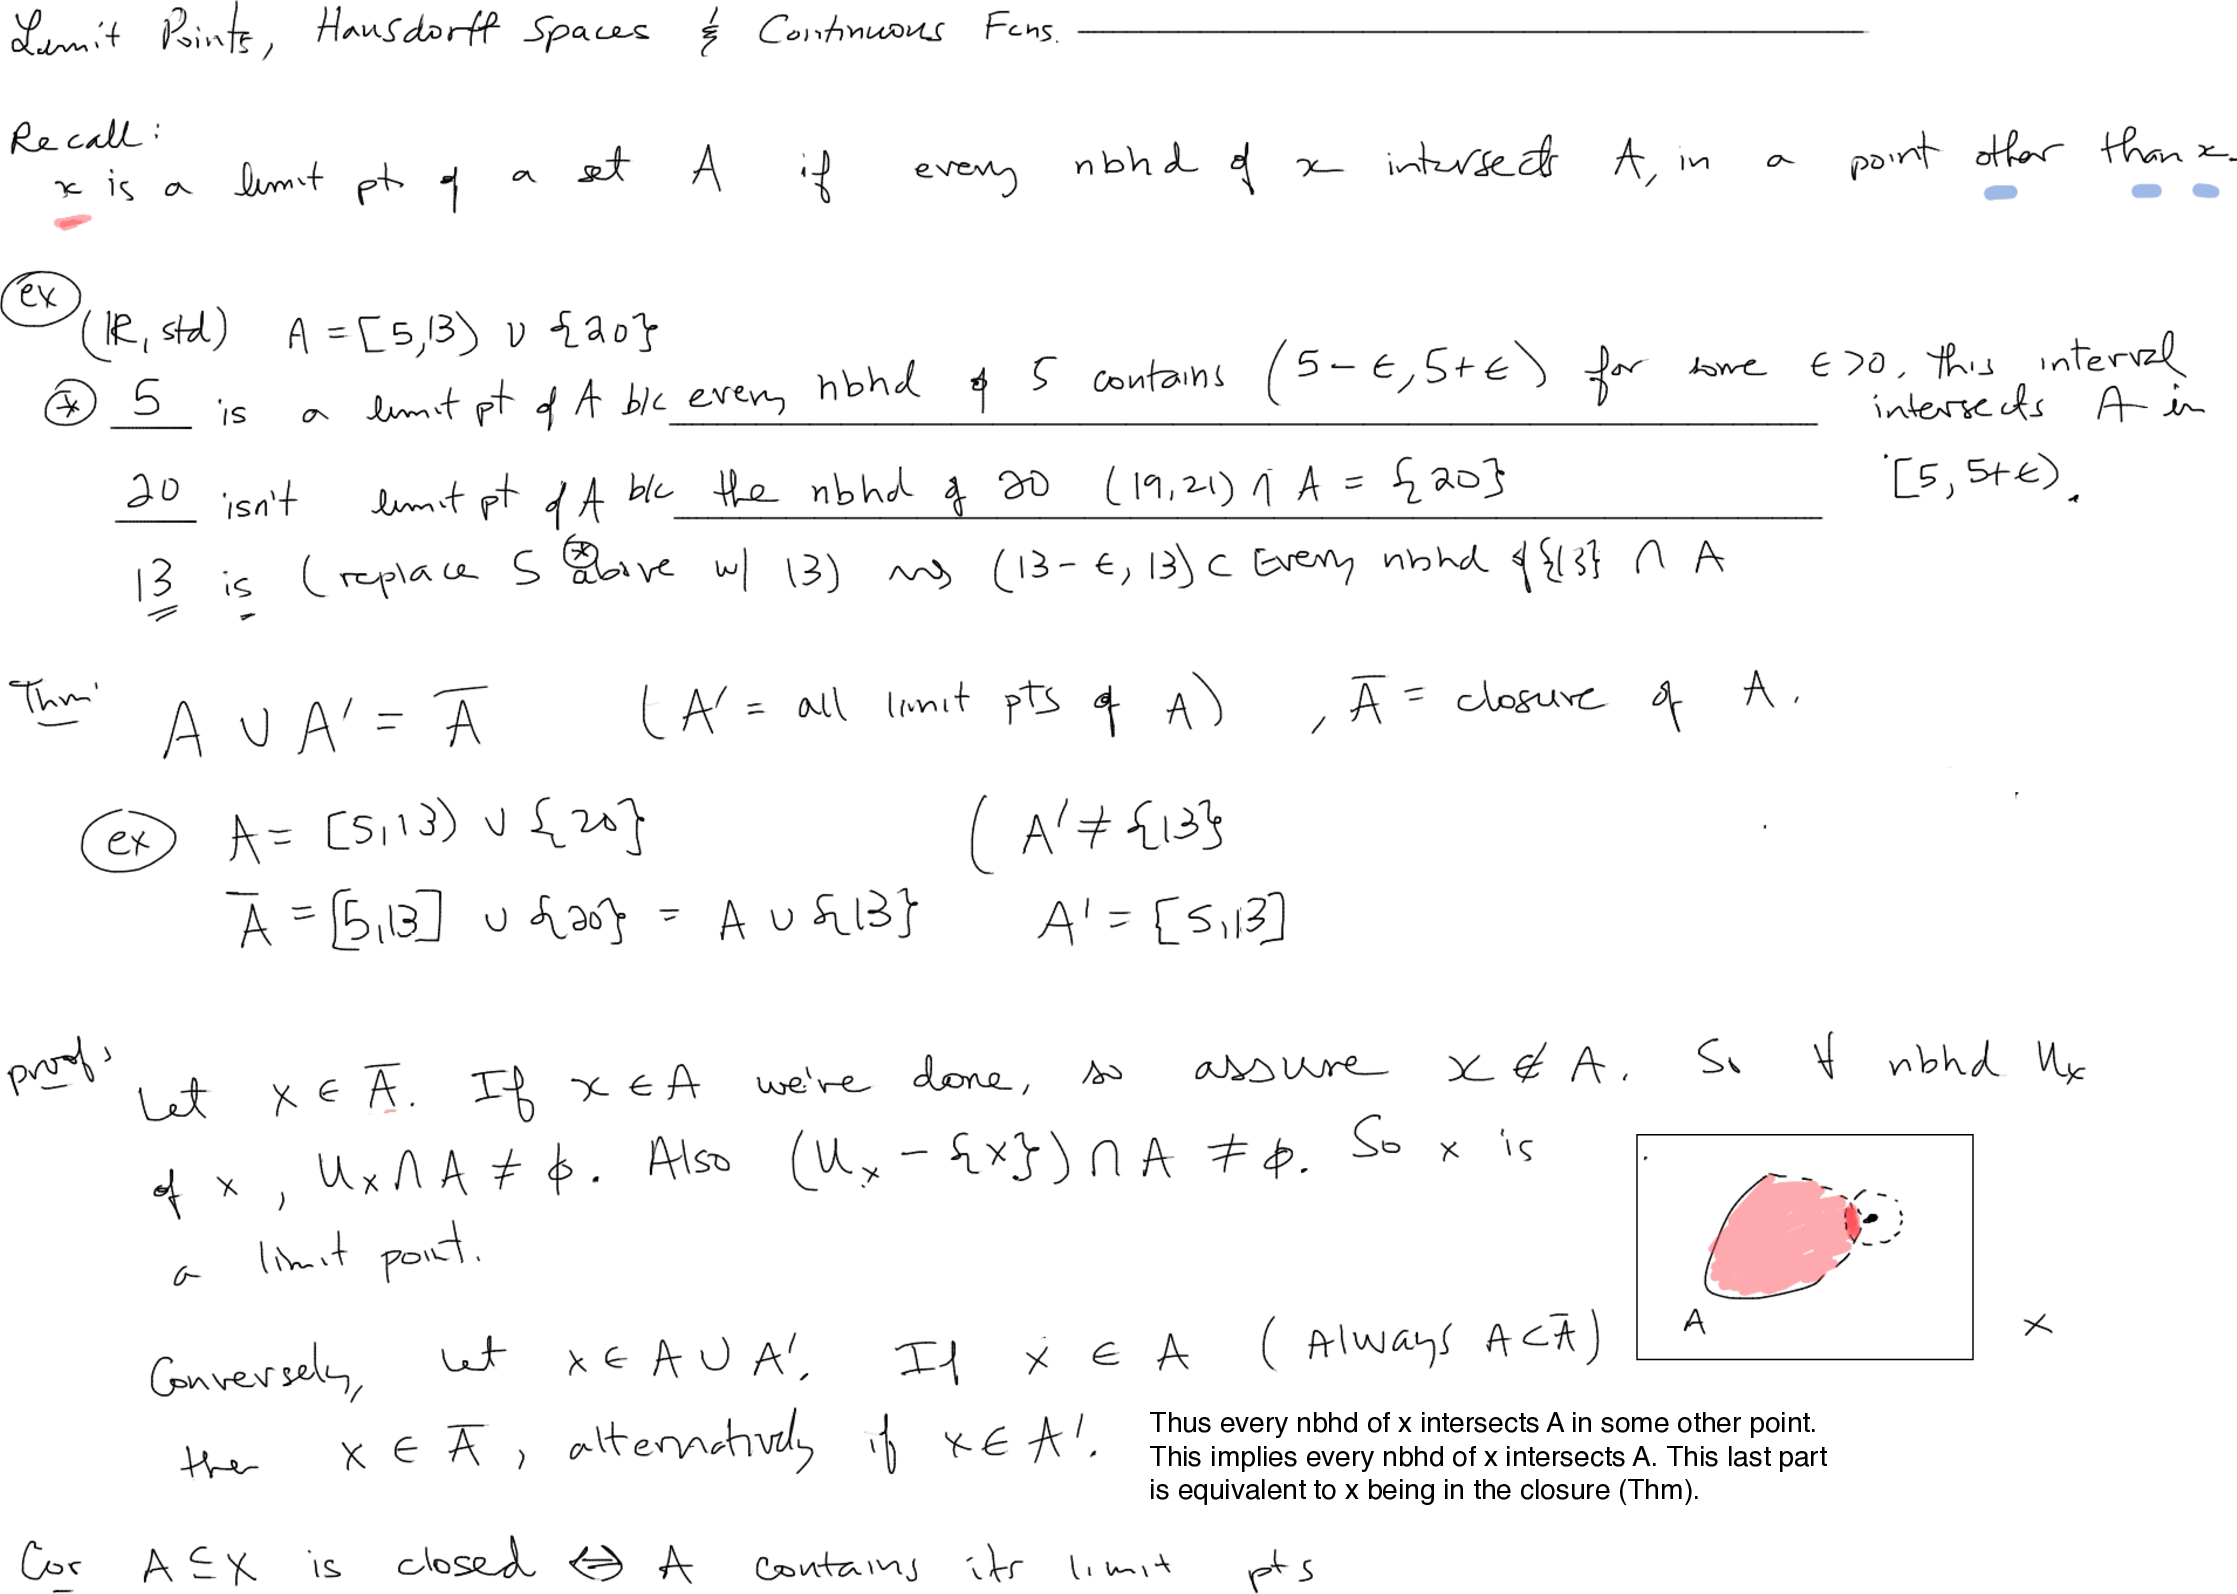 Limit Points, Hausdorff Spaces & Continuous Fcns.
Recall:
x is a limit pt of a set A if every nbhd of x intersects A, in a point other than x.
ex
(ℝ, std) A = [5,13) ∪ {20}
⊛ 5 is a limit pt of A b/c every nbhd of 5 contains (5-ε, 5+ε) for some ε>0, this interval
intersects A in
[5, 5+ε).
20 isn't limit pt of A b/c the nbhd of 20 (19,21) ∩ A = {20}
13 is (replace 5 ⊛ above w/ 13) ⇝ (13-ε, 13) ⊂ Every nbhd of {13} ∩ A
Thm: A ∪ A' = A̅ (A' = all limit pts of A), A̅ = closure of A.
ex A = [5,13) ∪ {20} ( A' ≠ {13}
A̅ = [5,13] ∪ {20} = A ∪ {13} A' = [5,13]
proof:
Let x ∈ A̅. If x ∈ A we're done, so assure x ∉ A. So ∀ nbhd Uₓ
of x, Uₓ ∩ A ≠ ϕ. Also (Uₓ - {x}) ∩ A ≠ ϕ. So x is
a limit point.
A
x
Conversely, let x ∈ A ∪ A'. If x ∈ A (Always A ⊂ A̅)
then x ∈ A̅, alternatively if x ∈ A'.
Thus every nbhd of x intersects A in some other point.
This implies every nbhd of x intersects A. This last part
is equivalent to x being in the closure (Thm).
Cor A ⊆ X is closed ⇔ A contains its limit pts